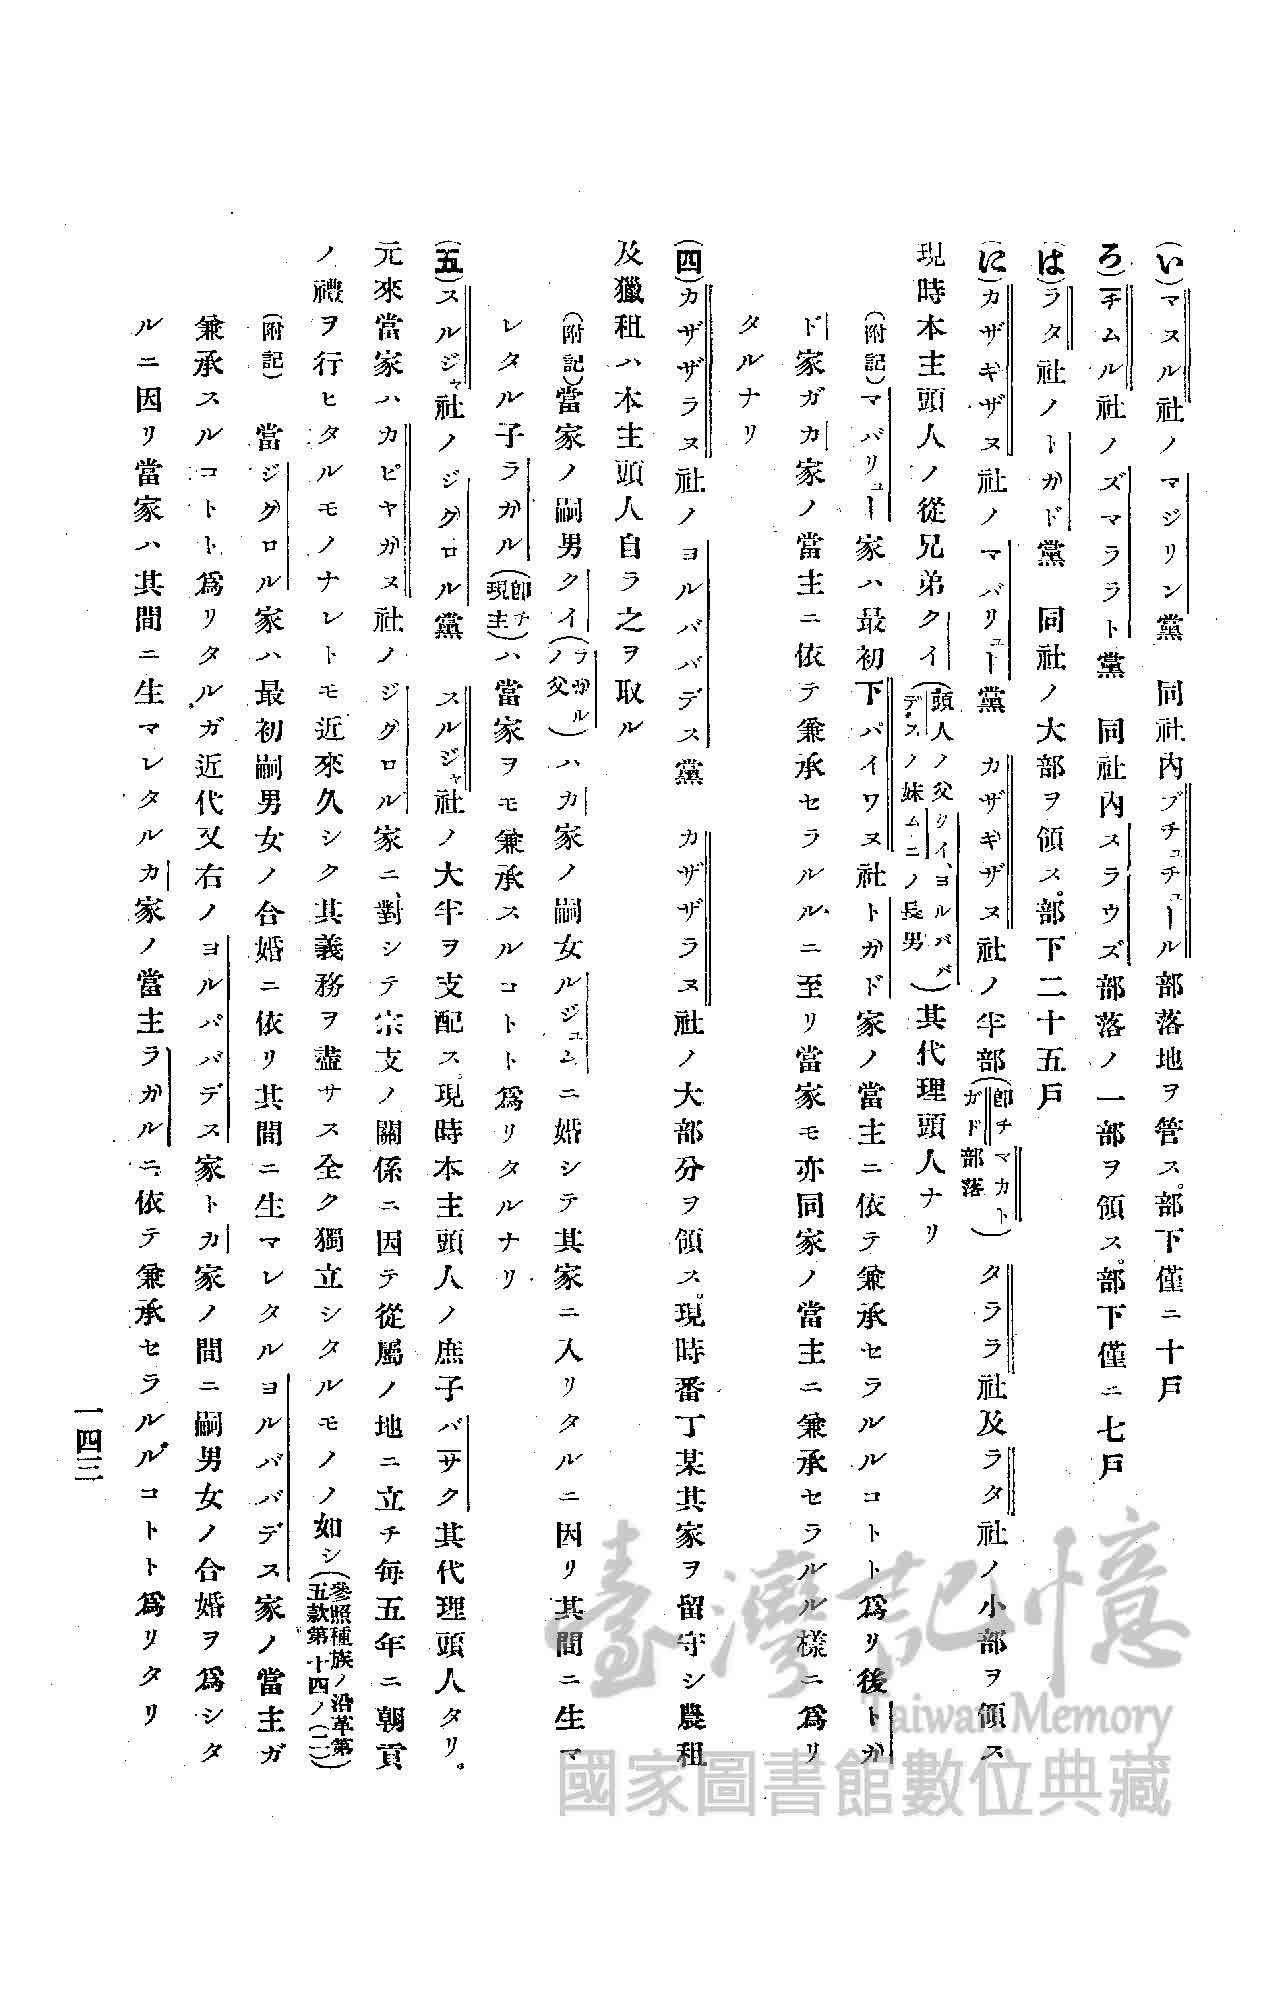 (い)マヌル社ノマジリン黨　同社内ブチュチュール部落地ヲ管ス。部下僅ニ十戸
(ろ)チムル社ノズマララト黨　同社内スラウズ部落ノ一部ヲ領ス。部下僅ニ七戸
(は)ラタ社ノトガド黨　同社ノ大部ヲ領ス。部下二十五戸
(に)カザギザヌ社ノマバリュー黨　カザギザヌ社ノ半部(即チマカトガド部落)　タララ社及ラタ社ノ小部ヲ領ス
現時本主頭人ノ從兄弟クイ(頭人ノ父クイ、ヨルババデスノ妹ムニノ長男)其代理頭人ナリ
(附記)マバリュー家ハ最初下パイワヌ社トガド家ノ當主ニ依テ兼承セラルルコトト爲リ後トガ
ド家ガカ家ノ當主ニ依テ兼承セラルルニ至リ當家モ亦同家ノ當主ニ兼承セラルル樣ニ爲リ
タルナリ
(四)カザザラヌ社ノヨルババデス黨　カザザラヌ社ノ大部分ヲ領ス。現時番丁某其家ヲ留守シ農租
及獵租ハ本主頭人自ラ之ヲ取ル
(附記)當家ノ嗣男クイ(ラガルノ父)ハカ家ノ嗣女ルジュムニ婚シテ其家ニ入リタルニ因リ其間ニ生マ
レタル子ラガル(即チ現主)ハ當家ヲモ兼承スルコトト爲リタルナリ
(五)スルジャ社ノジグロル黨　スルジャ社ノ大半ヲ支配ス。現時本主頭人ノ庶子バサク其代理頭人タリ。
元來當家ハカピヤガヌ社ノジグロル家ニ對シテ宗支ノ關係ニ因テ從屬ノ地ニ立チ毎五年ニ朝貢
ノ禮ヲ行ヒタルモノナレトモ近來久シク其義務ヲ盡サス全ク獨立シタルモノノ如シ(參照種族ノ沿革第五款第十四ノ(二))
(附記)　當ジグロル家ハ最初嗣男女ノ合婚ニ依リ其間ニ生マレタルヨルババデス家ノ當主ガ
兼承スルコトト爲リタルガ近代又右ノヨルババデス家トカ家ノ間ニ嗣男女ノ合婚ヲ爲シタ
ルニ因リ當家ハ其間ニ生マレタルカ家ノ當主ラガルニ依テ兼承セラルルコトト爲リタリ
一四三
臺灣記憶
Taiwan Memory
國家圖書館數位典藏